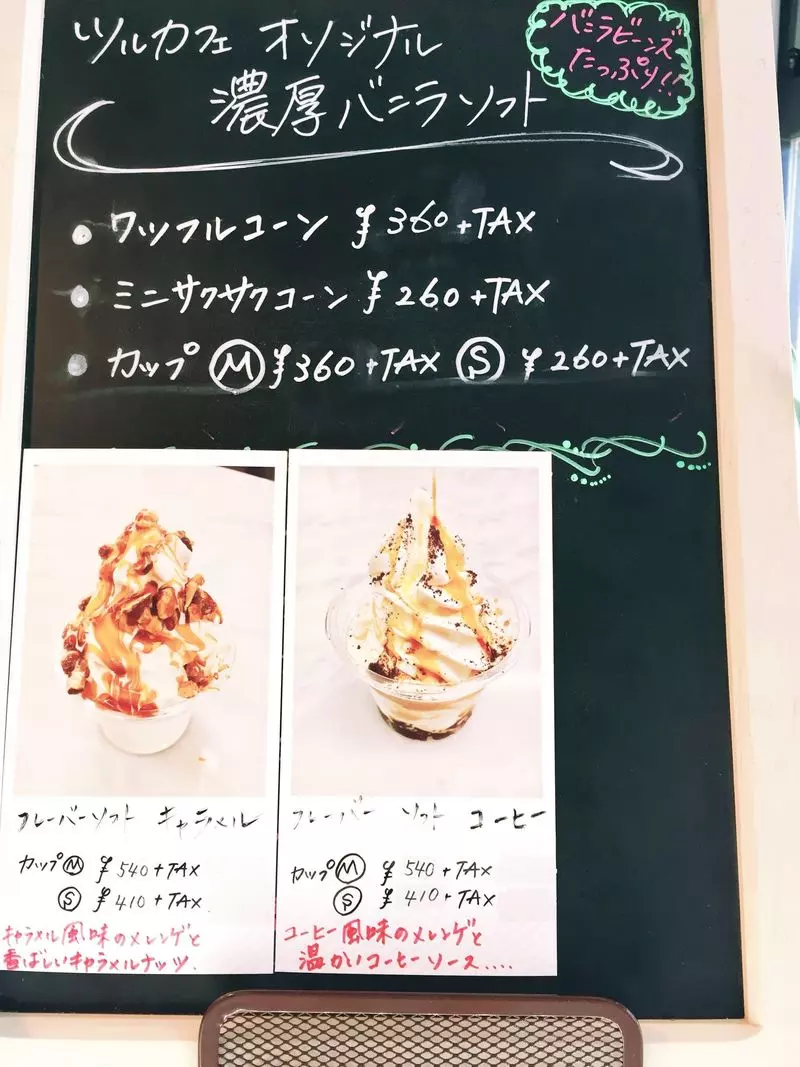 ツルカフェ オリジナル
濃厚バニラソフト
バニラビーンズ
たっぷり!!
ワッフルコーン ¥360+TAX
ミニサクサクコーン ¥260+TAX
カップ Ⓜ ¥360+TAX Ⓢ ¥260+TAX
フレーバーソフト キャラメル
カップⓂ ¥540+TAX
Ⓢ ¥410+TAX
キャラメル風味のメレンゲと
香ばしいキャラメルナッツ.
フレーバー ソフト コーヒー
カップⓂ ¥540+TAX
Ⓢ ¥410+TAX
コーヒー風味のメレンゲと
温かいコーヒーソース....